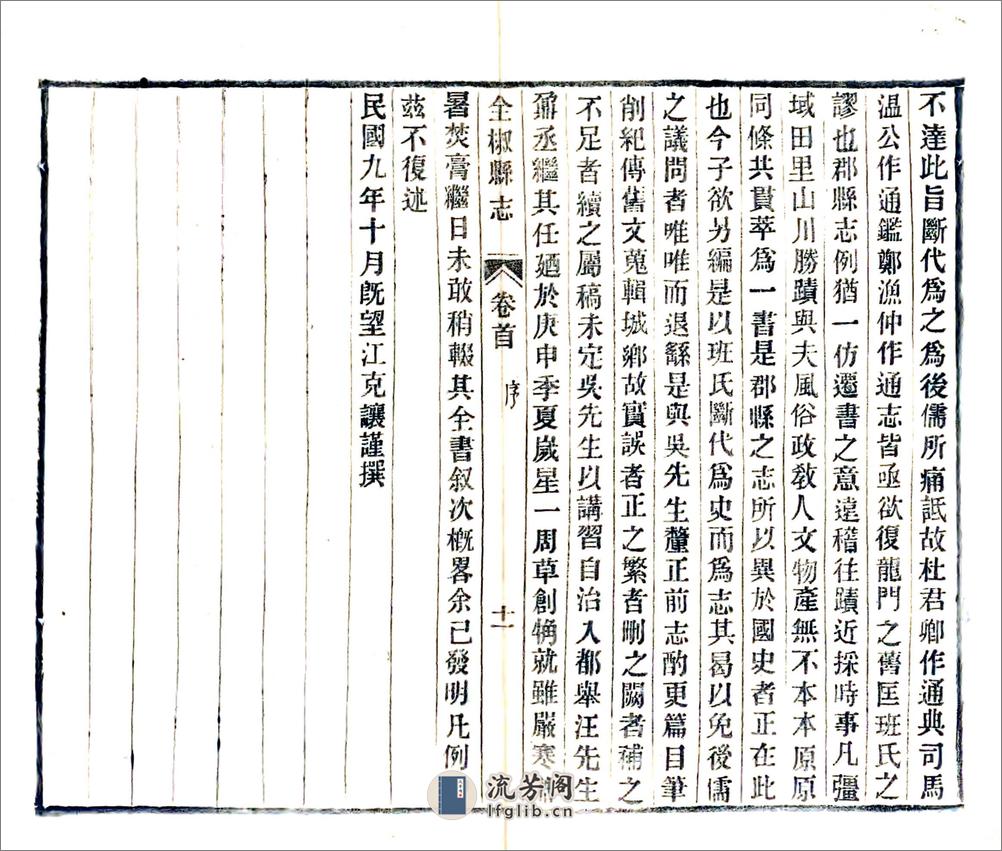 不達此旨斷代爲之爲後儒所痛詆故杜君卿作通典司馬
温公作通鑑鄭漁仲作通志皆亟欲復龍門之舊匡班氏之
謬也郡縣志例猶一仿遷書之意遠稽往蹟近採時事凡彊
域田里山川勝蹟與夫風俗政敎人文物產無不本本原原
同條共貫萃爲一書是郡縣之志所以異於國史者正在此
也今子欲另編是以班氏斷代爲史而爲志其曷以免後儒
之議問者唯唯而退繇是與吳先生釐正前志酌更篇目筆
削紀傳舊文蒐輯城鄉故實誤者正之繁者刪之闕者補之
不足者續之屬稿未定吳先生以講習自治入都舉汪先生
鼐丞繼其任廼於庚申季夏歲星一周草創觕就雖嚴寒
全椒縣志 卷首 序 十一
暑焚膏繼日未敢稍輟其全書叙次槪畧余已發明凡例
茲不復述
民國九年十月旣望江克讓謹撰
流芳閣
lfglib.cn